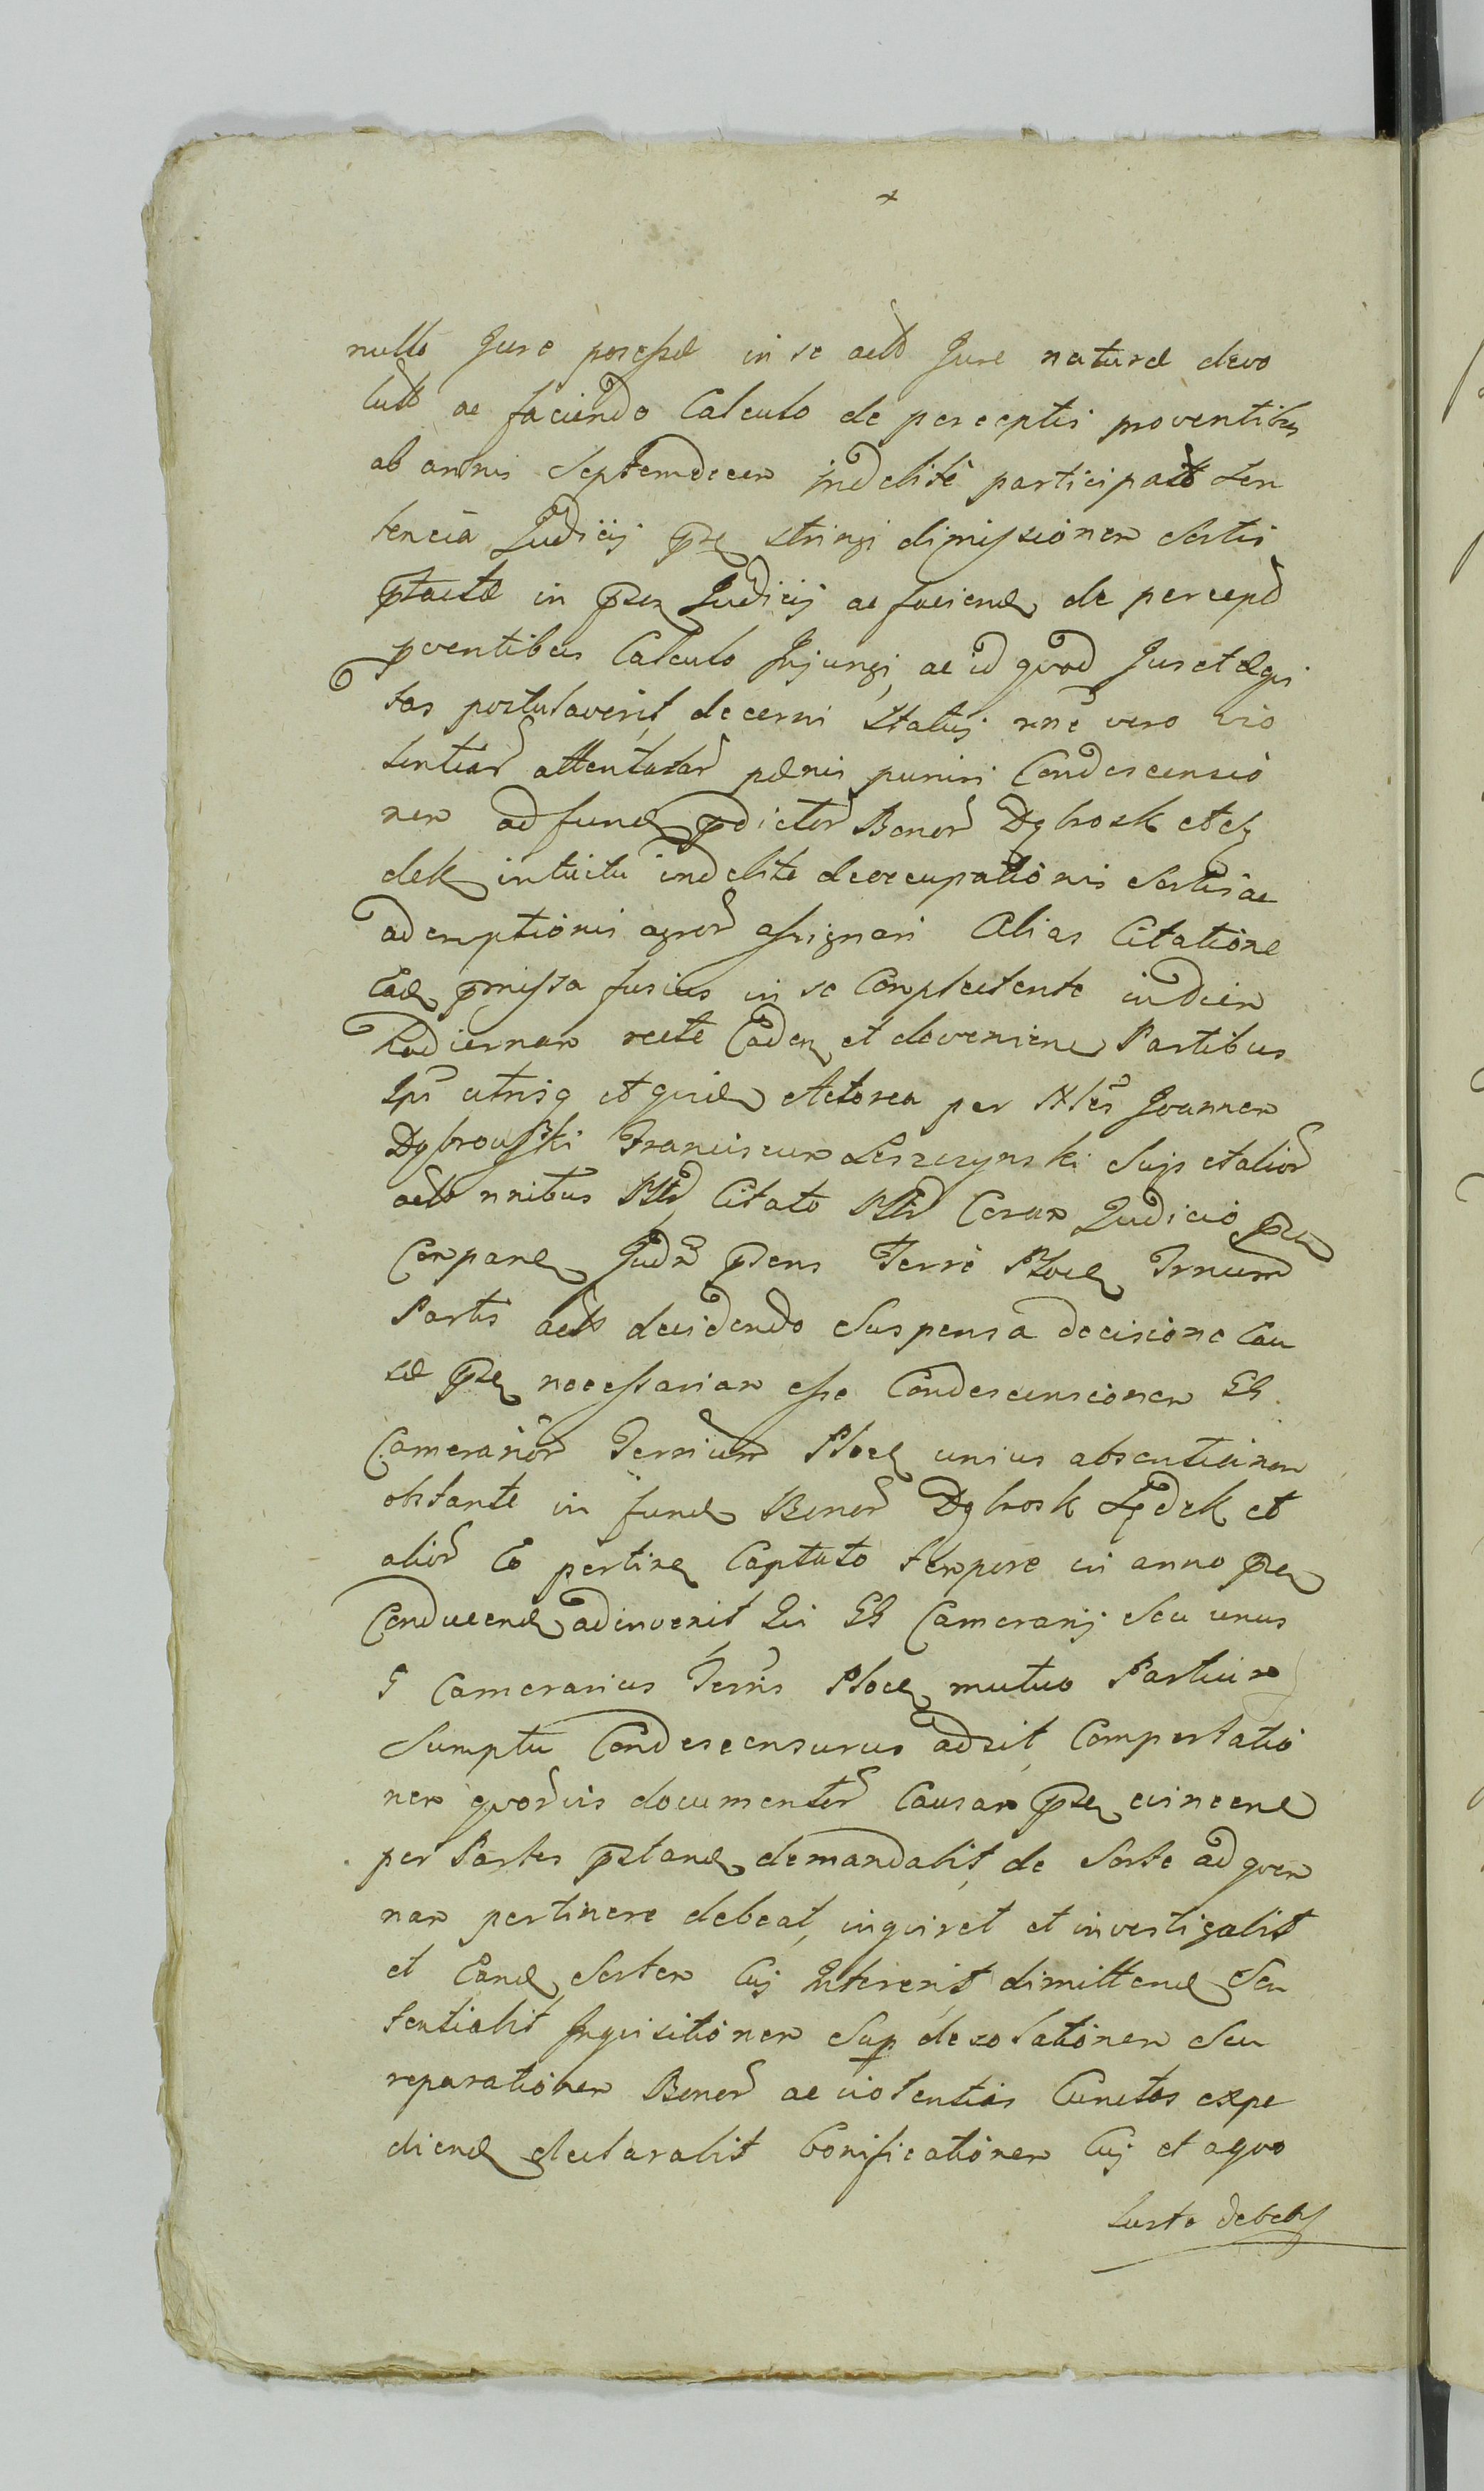 nullo Jure possessæ in se actō Jure naturæ devo
lutō ac faciendo Calculo de perceptis proventibus
ab annis Septemdecem indebite participatō Sen
tencia Judicij pse stringi dimissionem Sortis
ptactæ in psen Judicij ac faciend de percepd
pventibus Calculo Injungi, ac id quod Jus et æqui
tas postulaverit, decerni Statuj nnē vero vio
lentiar attentatar pænis puniri Condescensio
nem ad fund pdictor Bonor Dąbrosk et Lę
dek intuitu indebite deoccupationis Sortis ac
ademptionis agror assignari Alias Citatione
Ead pmissa fusius in se Complectente in diem
hodiernam recte Caden et devenien Partibus
Ipīs utrisq et quid Actorea per Nles Joannem
Dąbrowski Franciscum Leszczynski Suis et alior
actō nnibus Citato Coram Judicio psen
Comparen Judm psens Terrē Ploce
Partis actō decidendo Suspensa decisione Cau
sæ pse necessariam esse Condescensionem
Camerarior Terrium Ploce unius absentia non
obstante in fund Bonor Dąbrosk Lędek et
alior Eo pertine Captato tempore in anno pse
Conducend adinvenit Qui Camerarij Seu unus
G Camerarius Terris Ploce mutuo Partium
Sumptu Condescensurus adsit, Comportatio
nem quorvis documentor Causam pse evincen
per Partes pstand demandabit, de Sorte ad quem
nam pertinere debeat, inquiret et investigabit
et Eand Sortem Cuj Intererit dimittend Sen
tentiabit Inquisitionem Sup desolationem Seu
reparationem Bonor ac violentias Cunctas expe
diend declarabit bonificationem Cuj et a quo
Juste debeb